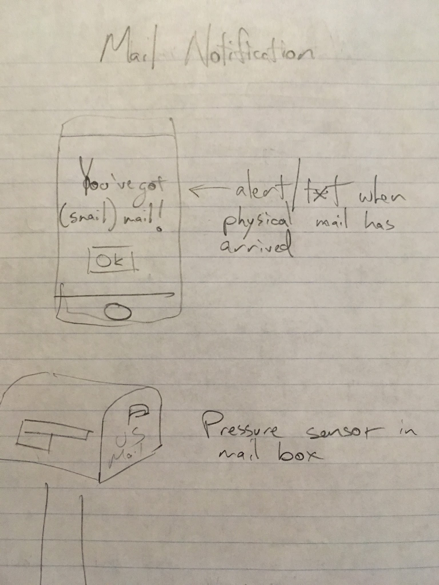 Mail Notification
You've got
(snail) mail!
OK
alert/txt when
physical mail has
arrived
US
Mail
Pressure sensor in
mail box